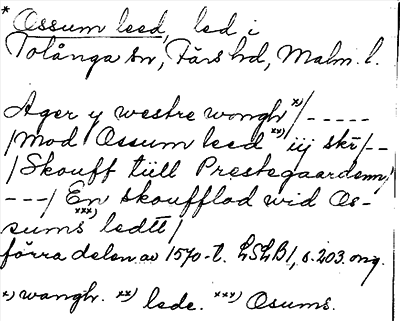 * Ossum leed, led i
Tolånga sn, Färs hd, Malm. l.
Ager y westre wongh x)/ -----
/Mod Ossum leed xx) iij skr/--
/Skouff tiill Prestegaardenn/
---/ En skoufflod wid Os-
sums xxx) ledtt/
förra delen av 1570-t. LSLB1, s. 203. orig.
x) wangh. xx) lede. xxx) Osums.